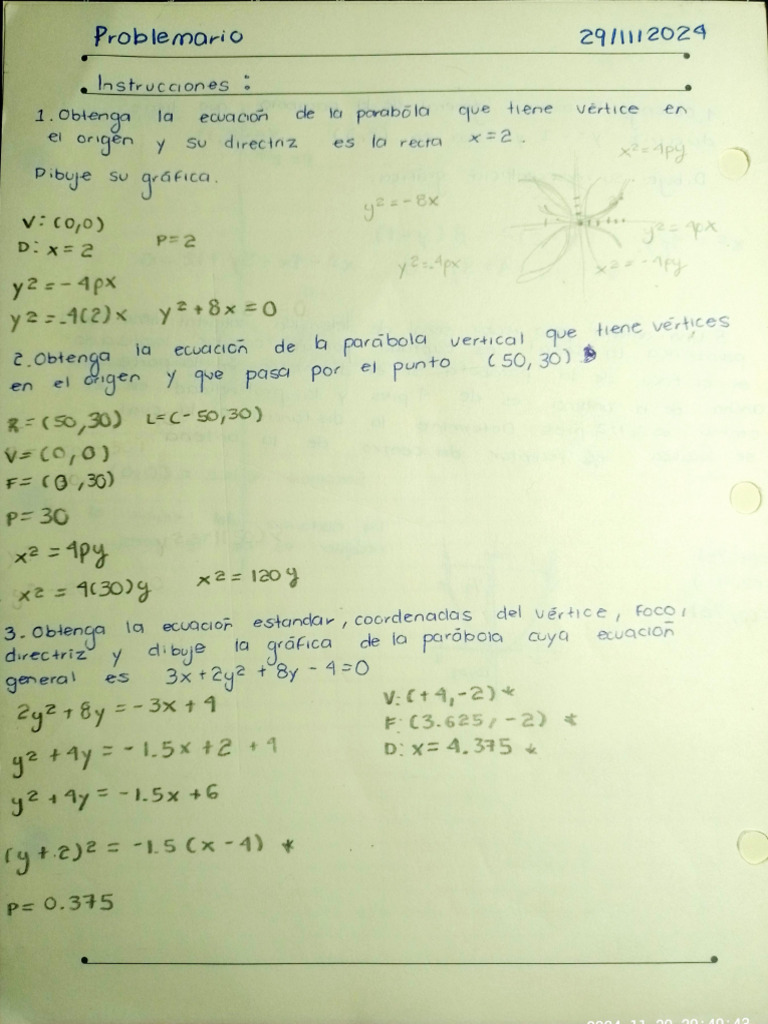 Problemario 29/11/2024
Instrucciones :
1. Obtenga la ecuación de la parabóla que tiene vértice en
el origen y su directriz es la recta x=2.
Dibuje su gráfica.
x²=4py
y²=-8x
V: (0,0)
D: x=2 P=2
y²=4px
y²=-4px
x²=-4py
y²=-4px
y²=-4(2)x y²+8x=0
2. Obtenga la ecuación de la parábola vertical que tiene vértices
en el origen y que pasa por el punto (50,30)
R=(50,30) L=(-50,30)
V=(0,0)
F=(0,30)
P=30
x²=4py
x²=4(30)y x²=120y
3. Obtenga la ecuación estandar, coordenadas del vértice, foco,
directriz y dibuje la gráfica de la parábola cuya ecuación
general es 3x+2y²+8y-4=0
2y²+8y=-3x+4
V: (+4,-2)*
F: (3.625,-2) *
D: x=4.375 *
y²+4y=-1.5x+2 +4
y²+4y=-1.5x+6
(y+2)²=-1.5(x-4) *
P=0.375